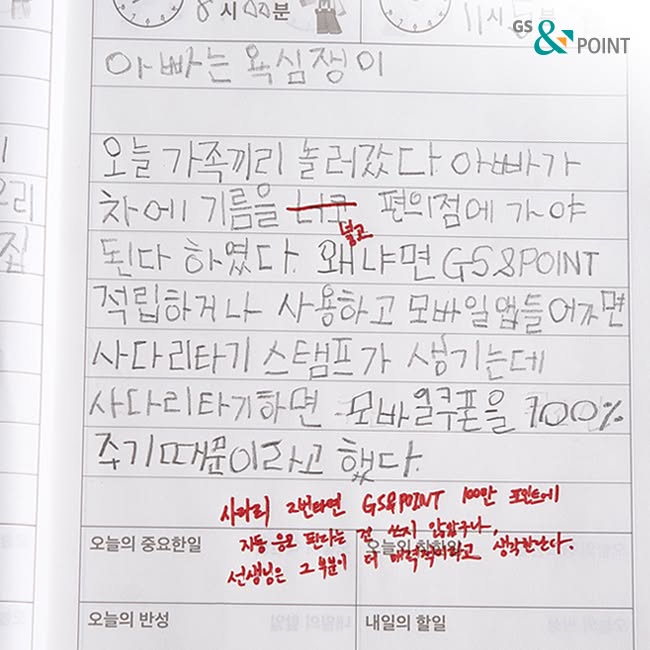 8시 00분
11시
GS
& POINT
아빠는 욕심쟁이
오늘 가족끼리 놀러갔다. 아빠가
차에 기름을 너쿠 편의점에 가야
넣고
된다 하였다. 왜냐면 GS&POINT
적립하거나 사용하고 모바일앱들어가면
사다리타기 스탬프가 생기는데
사다리타기하면 모바일쿠폰을 100%
주기때문이라고 했다.
사다리 2번타면 GS&POINT 100만 포인트에
자동 응모 된다는 건 쓰지 않았구나,
선생님은 그 부분이 더 매력적이라고 생각한단다.
오늘의 중요한일
오늘의 착한일
오늘의 반성
내일의 할일